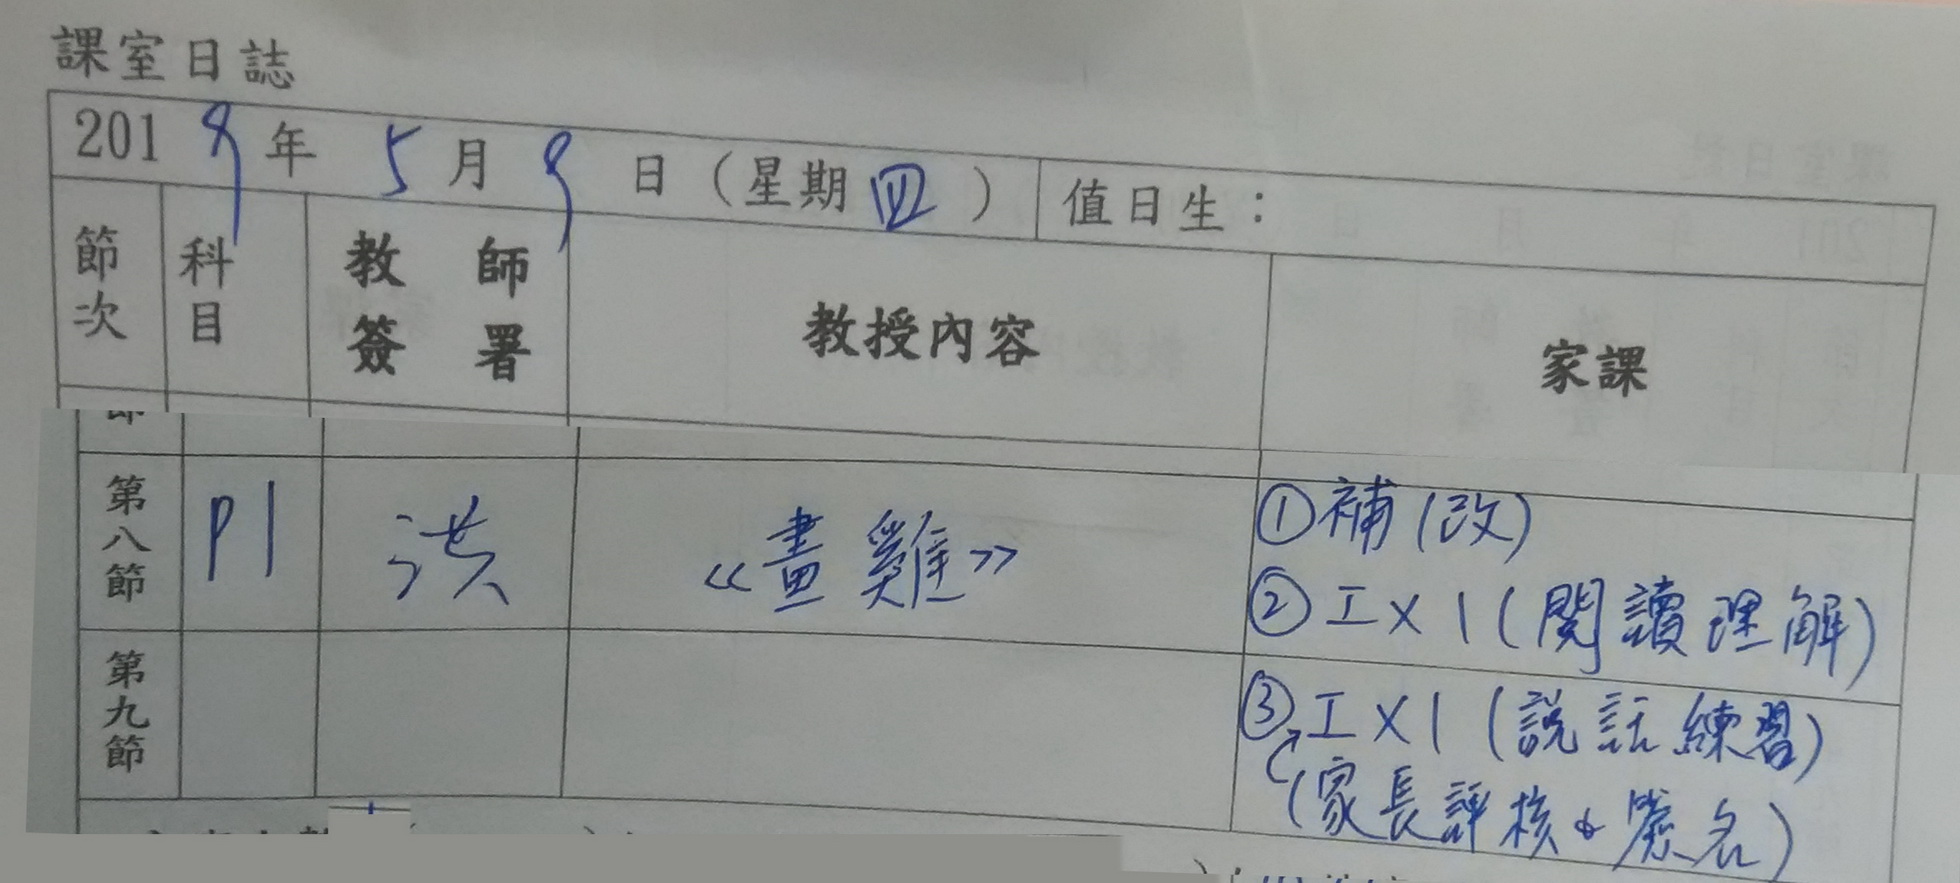 課室日誌
2019年 5月9日(星期四) 值日生：
節次 科目 教師簽署 教授內容 家課
第八節 P1 洪 《畫雞》 ①補(改)
②工×1(閱讀理解)
第九節 ③工×1(說話練習)
(家長評核&簽名)